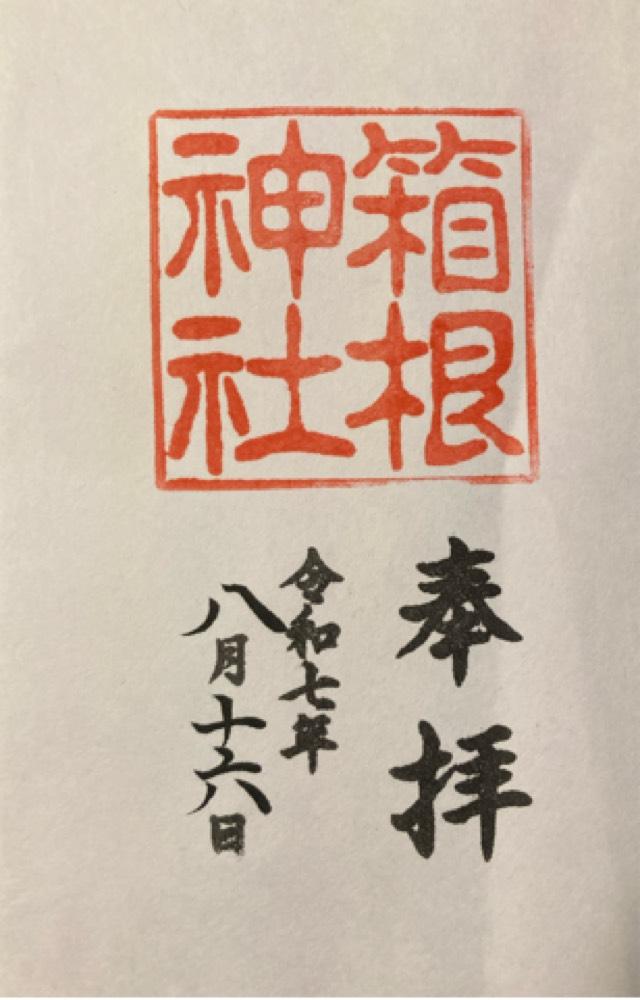 箱根
神社
奉拝
令和七年
八月十六日